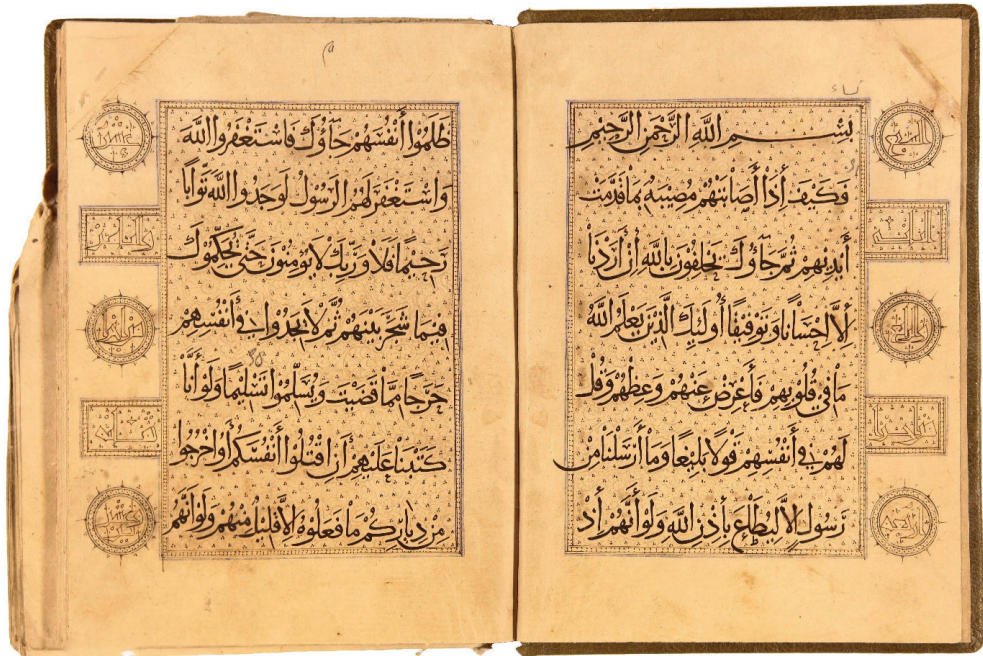 بِسْمِ اللَّهِ الرَّحْمَنِ الرَّحِيمِ
فَكَيْفَ إِذَا أَصَابَتْهُمْ مُصِيبَةٌ بِمَا قَدَّمَتْ
أَيْدِيهِمْ ثُمَّ جَآؤُكَ يَحْلِفُونَ بِاللَّهِ إِنْ أَرَدْنَا
إِلَّا إِحْسَانًا وَتَوْفِيقًا أُولَئِكَ الَّذِينَ يَعْلَمُ اللَّهُ
مَا فِي قُلُوبِهِمْ فَأَعْرِضْ عَنْهُمْ وَعِظْهُمْ وَقُل
لَهُمْ فِي أَنْفُسِهِمْ قَوْلًا بَلِيغًا وَمَا أَرْسَلْنَا مِنْ
رَسُولٍ إِلَّا لِيُطَاعَ بِإِذْنِ اللَّهِ وَلَوْ أَنَّهُمْ إِذْ
ظَلَمُوا أَنْفُسَهُمْ جَآؤُكَ فَاسْتَغْفَرُوا اللَّهَ
وَاسْتَغْفَرَ لَهُمُ الرَّسُولُ لَوَجَدُوا اللَّهَ تَوَّابًا
رَحِيمًا فَلَا وَرَبِّكَ لَا يُؤْمِنُونَ حَتَّى يُحَكِّمُوكَ
فِيمَا شَجَرَ بَيْنَهُمْ ثُمَّ لَا يَجِدُوا فِي أَنْفُسِهِمْ
حَرَجًا مِمَّا قَضَيْتَ وَيُسَلِّمُوا تَسْلِيمًا وَلَوْ أَنَّا
كَتَبْنَا عَلَيْهِمْ أَنِ اقْتُلُوا أَنْفُسَكُمْ أَوِ اخْرُجُوا
مِنْ دِيَارِكُمْ مَا فَعَلُوهُ إِلَّا قَلِيلٌ مِنْهُمْ وَلَوْ أَنَّهُمْ